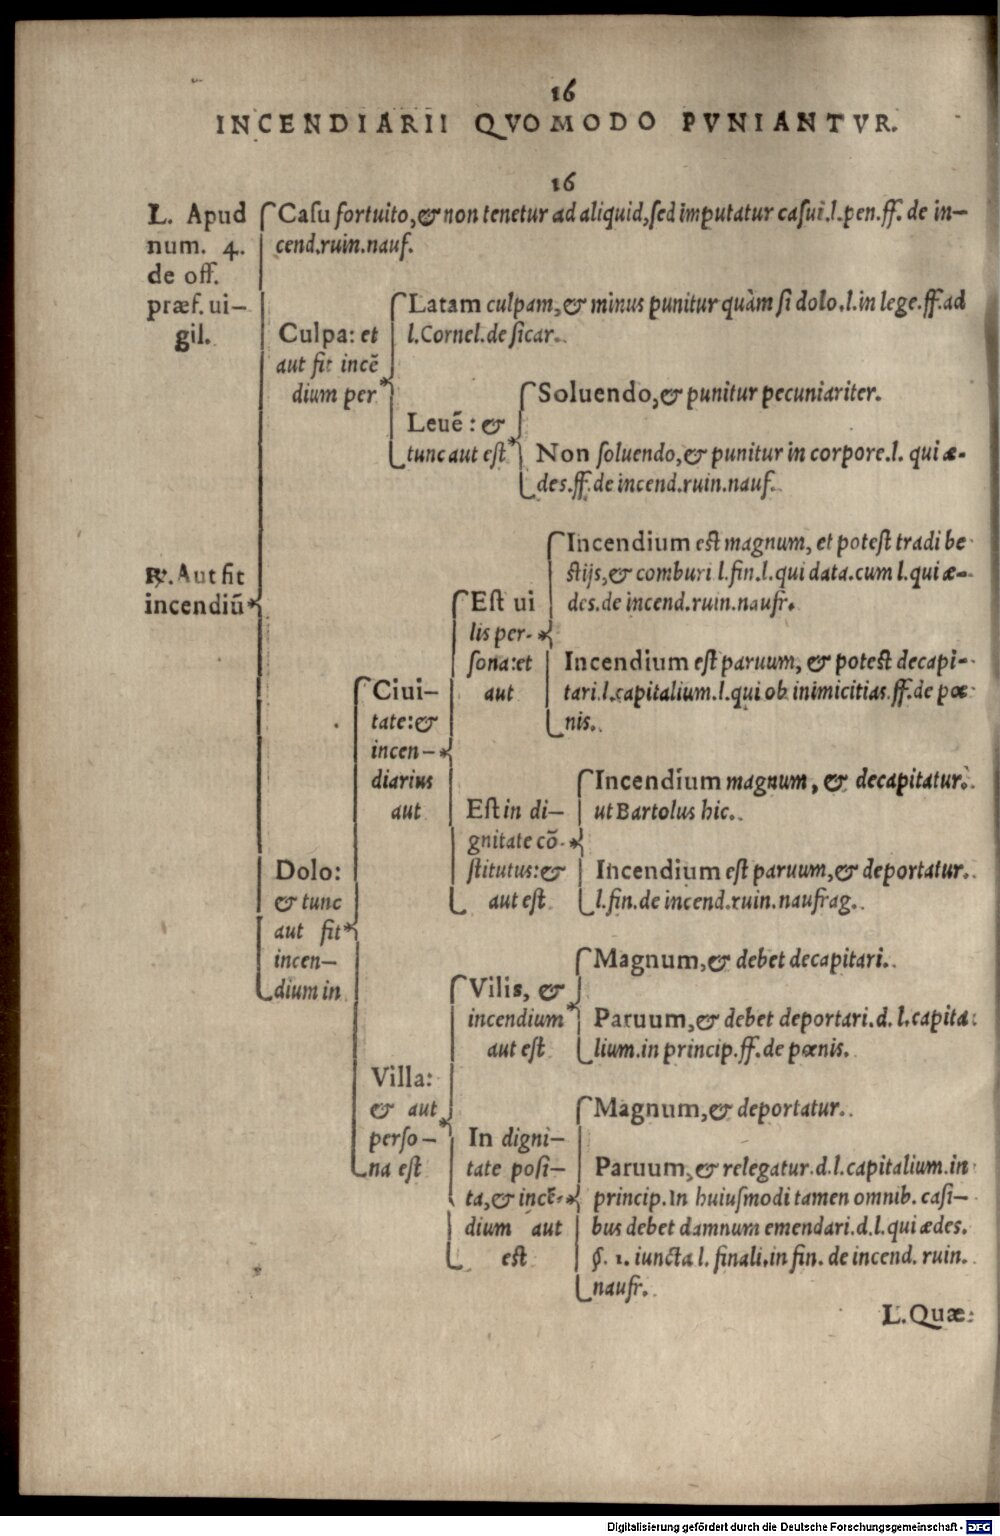 16
INCENDIARII QVOMODO PVNIANTVR.
16
L. Apud
num. 4.
de off.
præf. ui-
gil.
℞. Aut fit
incendiũ
Caſu fortuito, & non tenetur ad aliquid, ſed imputatur caſui. l. pen. ff. de in-
cend. ruin. nauf.
Culpa: et
aut fit incẽ
dium per
Latam culpam, & minus punitur quàm ſi dolo. l. in lege. ff. ad
l. Cornel. de ſicar.
Leuẽ: &
tunc aut eſt
Soluendo, & punitur pecuniariter.
Non ſoluendo, & punitur in corpore. l. qui æ-
des. ff. de incend. ruin. nauf.
Dolo:
& tunc
aut fit
incen-
dium in
Ciui-
tate: &
incen-
diarius
aut
Eſt ui
lis per-
ſona: et
aut
Incendium eſt magnum, et poteſt tradi be
ſtijs, & comburi l. fin. l. qui data. cum l. qui æ-
des. de incend. ruin. naufr.
Incendium eſt paruum, & poteſt decapi-
tari. l. capitalium. l. qui ob inimicitias. ff. de pœ
nis.
Eſt in di-
gnitate cõ-
ſtitutus: &
aut eſt
Incendium magnum, & decapitatur.
ut Bartolus hic.
Incendium eſt paruum, & deportatur.
l. fin. de incend. ruin. naufrag.
Villa:
& aut
perſo-
na eſt
Vilis, &
incendium
aut eſt
Magnum, & debet decapitari.
Paruum, & debet deportari. d. l. capita
lium. in princip. ff. de pœnis.
In digni-
tate poſi-
ta, & incẽ-
dium aut
eſt
Magnum, & deportatur.
Paruum, & relegatur. d. l. capitalium. in
princip. In huiuſmodi tamen omnib. caſi-
bus debet damnum emendari. d. l. qui ædes.
§. 1. iuncta l. finali. in fin. de incend. ruin.
naufr.
L. Quæ
Digitalisierung gefördert durch die Deutsche Forschungsgemeinschaft - DFG